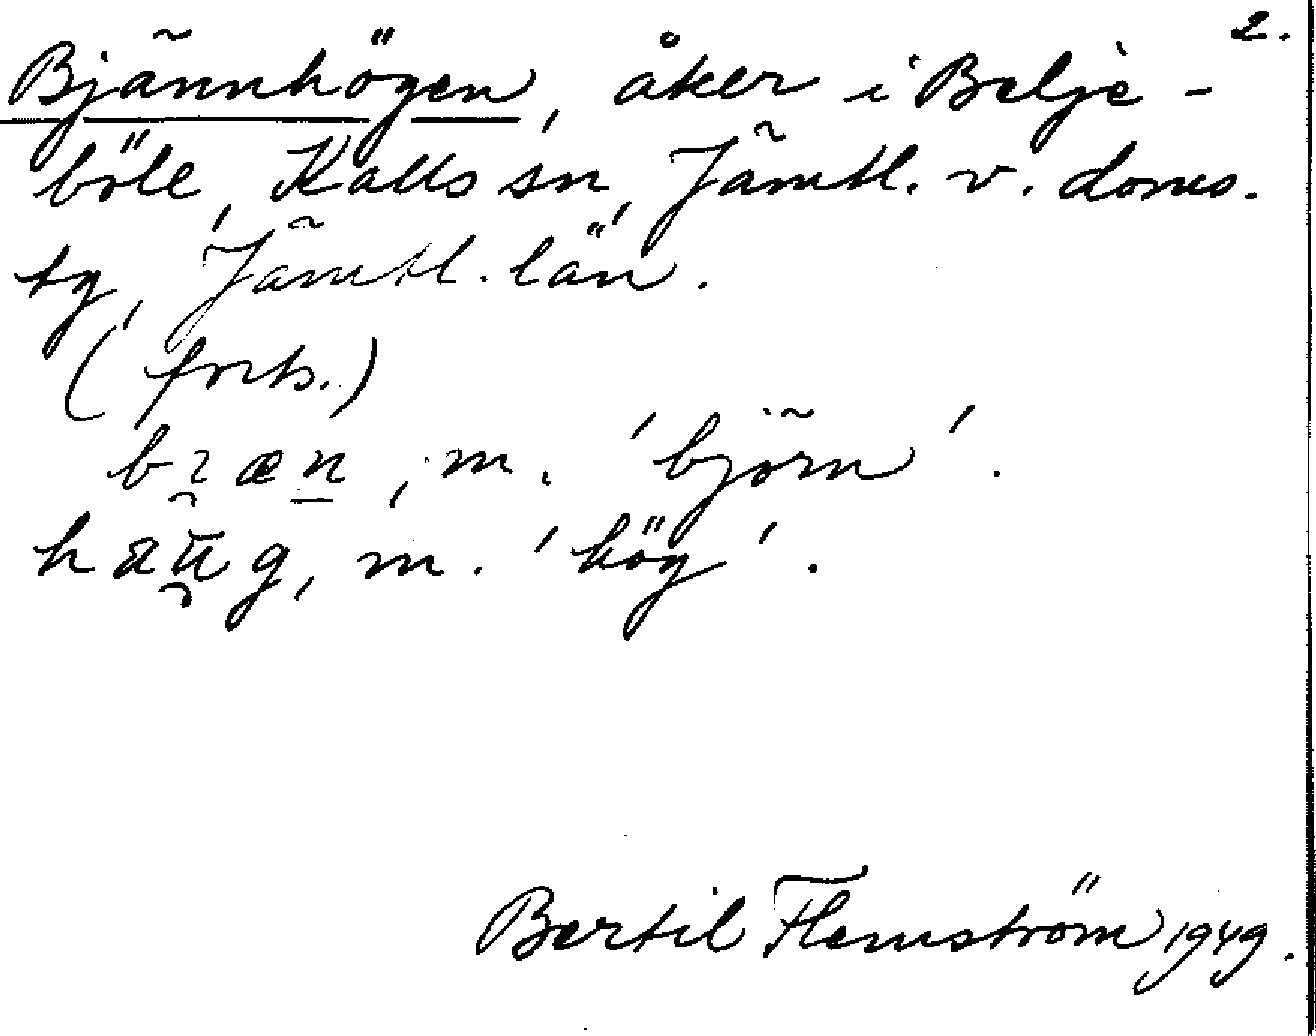 2.
Bjännhögen, åker i Belje-
böle, Kalls sn, Jämtl. v. doms.
tg, Jämtl. län.
(forts.)
bɿæn, m. 'björn'.
haug, m. 'hög'.
Bertil Flemström 1949.